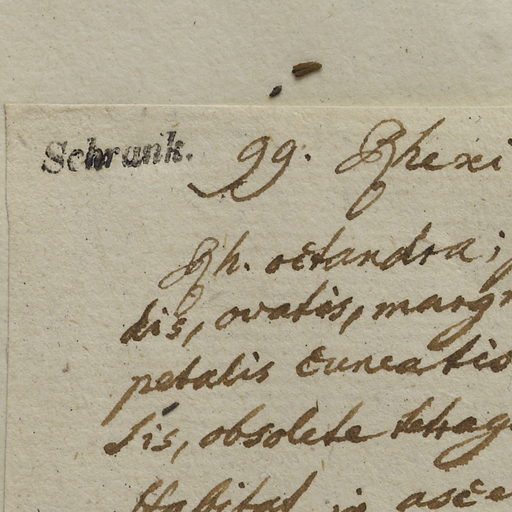 Schrank. 99. Rhexi
Rh. octandra;
dis, ovatis, margi
petalis cuneatis
sis, obsolete tetrag
Habitat in asce